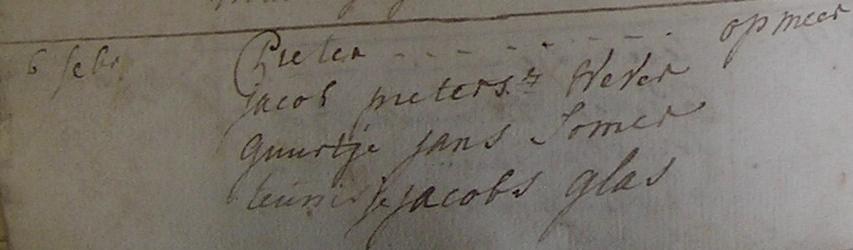 6 febr Pieter - - - - - - - opmeer
jacob pietersz Wever
guurtje jans Somer
teunisje jacobs glas